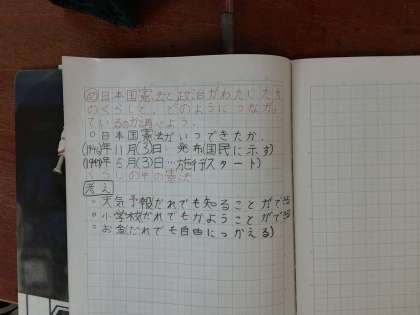 め 日本国憲法と政治がわたしたち
のくらしと、どのようにつながっ
ているか調べよう。
○日本国憲法がいつできたか。
(1946)年11月(3)日 発布(国民に示す)
(1947)年5月(3)日…施行(スタート)
くらしの中の憲法
考え
○天気予報(だれでも知ることができる
○小学校(だれでもかようことができる
○お金(だれでも自由につかえる)